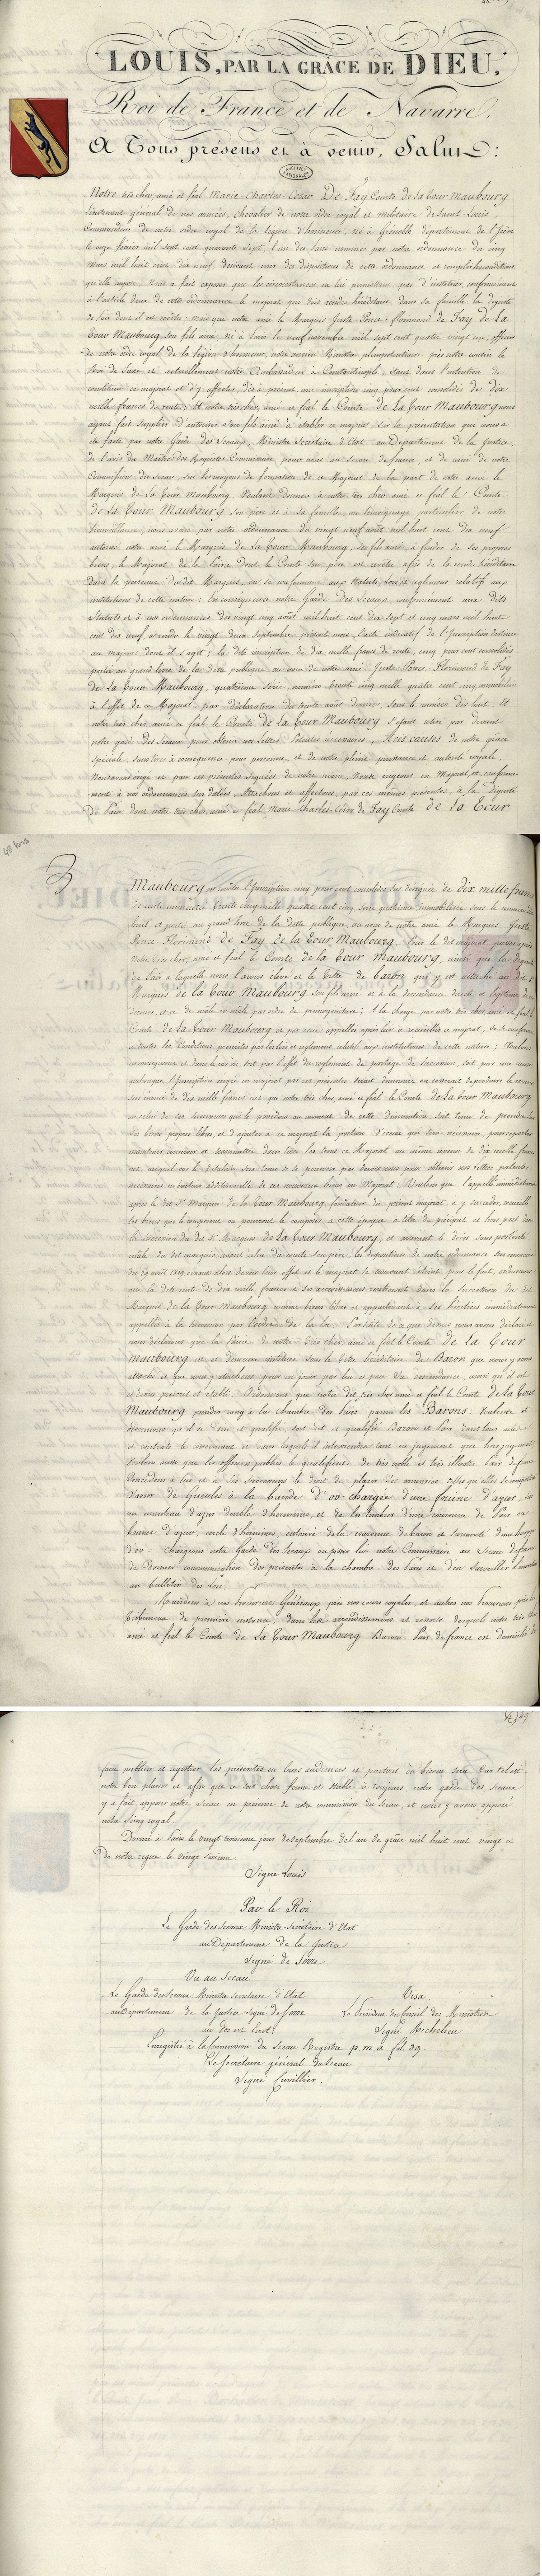 LOUIS, PAR LA GRÂCE DE DIEU,
Roi de France et de Navarre.
A Tous présens et à venir, Salut:
ARCHIVES NATIONALES
Notre très cher, amé et féal Marie-Charles-César De Faÿ Comte de la Tour Maubourg
Lieutenant général de nos armées, Chevalier de notre ordre royal et militaire de Saint Louis,
Commandeur de notre ordre royal de la légion d'honneur, né à Grenoble département de l'Isère
le onze février mil sept cent quarante sept, l'un des Pairs nommés par notre ordonnance du cinq
Mars mil huit cent dix neuf, désirant user des dispositions de cette ordonnance et remplir les conditions
qu'elle impose, Nous a fait exposer que les circonstances ne lui permettent pas d'instituer, conformément
à l'article deux de cette ordonnance le majorat qui doit rendre héréditaire dans sa famille la dignité
de Pair dont il est revêtu; mais que notre amé le Marquis Juste-Ponce-Florimond de Faÿ de La
Tour Maubourg, son fils aîné, né à Paris le neuf novembre mil sept cent quatre vingt un, officier
de notre ordre royal de la légion d'honneur, notre ancien Ministre plénipotentiaire près notre cousin le
Roi de Saxe et actuellement notre Ambassadeur à Constantinople, étant dans l'intention de
constituer ce majorat et d'y affecter, dès à présent une inscription cinq pour cent consolidés de dix
mille francs de rente; Et notre très cher, amé et féal le Comte de La Tour Maubourg nous
ayant fait supplier d'autoriser son fils aîné à établir ce majorat sur la présentation qui nous a
été faite par notre Garde des Sceaux, Ministre Secrétaire d'Etat au Département de la Justice,
de l'avis du Maître des Requêtes Commissaire pour nous au Sceau de france et de celui de notre
Commission du Sceau, sur les moyens de formation de ce Majorat de la part de notre amé le
Marquis de La Tour Maubourg. Voulant donner à notre très cher amé et féal le Comte
de La Tour Maubourg son père et à sa famille, un témoignage particulier de notre
bienveillance, nous avons par notre ordonnance du vingt neuf août mil huit cent dix neuf
autorisé notre amé le Marquis de la Tour Maubourg, son fils aîné, à fonder de ses propres
biens, le Majorat de la Pairie dont le Comte son père est revêtu afin de la rendre héréditaire
dans la personne dudit Marquis, en se conformant aux Statuts, Lois et réglemens relatifs aux
institutions de cette nature: En conséquence notre Garde des Sceaux, conformément aux dits
Statuts et à nos ordonnances des vingt cinq août mil huit cent dix sept et cinq mars mil huit
cent dix neuf, a rendu le vingt deux Septembre présent mois, l'acte indicatif de l'Inscription destinée
au majorat dont il s'agit; la dite inscription de dix mille francs de rente, cinq pour cent consolidés
portée au grand livre de la dette publique au nom de notre amé Juste-Ponce-Florimond de Faÿ
de La Tour Maubourg, quatrième Série, numéro trente cinq mille quatre cent cinq, immobilisée
à l'effet de ce Majorat par déclaration du trente août dernier, sous le numéro dix huit. Et
notre très cher amé et féal le Comte de La Tour Maubourg s'étant retiré par devant
notre garde des Sceaux pour obtenir nos Lettres Patentes nécessaires, A ces causes de notre grâce
spéciale, sans tirer à conséquence pour personne, et de notre pleine puissance et autorité royale,
Nous avons érigé et par ces présentes Signées de notre main, Nous érigeons en Majorat, et, conformé-
ment à nos ordonnances sus datées, Attachons et affectons, par ces mêmes présentes, à la dignité
De Pair dont notre très cher, amé et féal Marie Charles César de Faÿ Comte de La Tour
48 bis
Maubourg est revêtu l'Inscription cinq pour cent consolidés sus désignée de dix mille francs
de rente numérotée trente cinq mille quatre cent cinq, série quatrième immobilisée sous le numéro dix
huit et portée au grand livre de la dette publique au nom de notre amé le Marquis Juste
Ponce-Florimond de Faÿ de la Tour Maubourg. Pour le dit majorat passer après
Notre très cher, amé et féal le Comte de la Tour Maubourg, ainsi que la dignité
de Pair à laquelle nous l'avons élevé et le Titre de Baron qui y est attaché au dit Sr
Marquis de la Tour Maubourg Son fils aîné et à la descendance directe et légitime de ce
dernier, et ce de mâle en mâle par ordre de primogéniture; A la charge par notre très cher, amé et féal le
Comte de la Tour Maubourg et par ceux appellés après lui à recueillir ce majorat, de se conformer
à toutes les Conditions prescrites par les lois et réglemens relatifs aux institutions de cette nature; Voulons
en conséquence et dans le cas où, soit par l'effet du réglement de partage de succession, soit par une cause
quelconque l'Inscription érigée en majorat par ces présentes serait diminuée ou cesserait de produire le revenu
sus énoncé de dix mille francs net que notre très cher, amé et féal le Comte de La Tour Maubourg
ou celui de ses successeurs qui le possèdera au moment de cette diminution, soit tenu de prendre sur
des biens propres libres, et d'ajouter à ce majorat la portion d'iceux qui sera nécessaire pour reporter
maintenir, conserver et transmettre dans tous les tems ce Majorat au même revenu de dix mille francs
net, auquel cas le titulaire sera tenu de se pourvoir par devers nous pour obtenir nos lettres patentes
nécessaires en érection additionnelle de ces nouveaux biens en Majorat: Voulons que l'appellé immédiatement
après le dit Sr Marquis de la Tour Maubourg, fondateur du présent majorat, à y succéder, recueille
les biens qui le composent ou pourront le composer à cette époque à titre de préciput et hors part dans
la succession du dit Sr Marquis de La Tour Maubourg, et arrivant le décès sans postérité
mâle du dit marquis, avant celui du comte son père, les dispositions de notre ordonnance sus énoncée
du 29 août 1819 cessant alors d'avoir leur effet et le majorat se trouvant éteint par le fait, ordonnons
que la dite rente de dix mille francs et ses accroissemens rentreront dans la succession du dit
Marquis de la Tour Maubourg comme biens libres et appartiendront à ses héritiers immédiatement
appellés à lui succéder par l'ordre de la loi. Par suite de ce que dessus nous avons déclaré et
nous déclarons que la Pairie de notre très cher amé et féal le Comte de La Tour
Maubourg est et demeure instituée sous le titre héréditaire de Baron que nous y avons
attaché et que nous y attachons, pour en jouir par lui et par sa descendance, ainsi qu'il est
ci-dessus prescrit et établi. Ordonnons que notre dit très cher amé et féal le Comte de la Tour
Maubourg prendra rang à la chambre des Pairs parmi les Barons: voulons et
ordonnons qu'il se dise et qualifie, soit dit et qualifié Baron et Pair dans tous actes
et contrats le concernant et dans lesquels il interviendra tant en jugement que hors jugement
Voulons aussi que les officiers publics le qualifient de très noble et très illustre Pair de france
Concédons à lui et à ses successeurs le droit de placer ses armoiries telles qu'elles se composent
Savoir: de Gueules à la bande d'or chargée d'une fouine d'azur, sur
un manteau d'azur doublé d'hermines, et de les timbrer d'une couronne de Pair ou
bonnet d'azur, cerclé d'hermines, entouré de la couronne de baron et surmonté d'une houppe
d'or. Chargeons notre Garde des Sceaux ou pour lui notre Commissaire au Sceau de france
de donner communication des présentes à la chambre des Pairs et d'en surveiller l'insertion
au bulletin des lois.
Mandons à nos Procureurs Généraux près nos cours royales, et autres nos Procureurs près les
Tribunaux de première instance, dans les arrondissemens et ressorts desquels notre très cher
amé et féal le Comte de La Tour Maubourg Baron Pair de france est domicilié de
faire publier et registrer les présentes en leurs audiences et partout où besoin sera. Car tel est
notre bon plaisir et afin que ce soit chose ferme et stable à toujours, notre garde des sceaux
y a fait apposer notre Sceau en présence de notre commission du Sceau, et nous y avons apposé
notre Seing royal.
Donné à Paris le vingt troisième jour de septembre de l'an de grâce mil huit cent vingt et
de notre règne le vingt sixième.
Signé Louis
Par le Roi
Le Garde des Sceaux Ministre Secrétaire d'Etat
au Département de la Justice
Signé de Serre
Vu au Sceau
Le Garde des Sceaux Ministre Secrétaire d'Etat
au Département de la Justice Signé de Serre
Visa
Le Président du Conseil des Ministres
Signé Richelieu
Enregistré à la Commission du Sceau Registre p.m.a fol. 39.
Le Secrétaire général du Sceau
Signé Cuvillier.